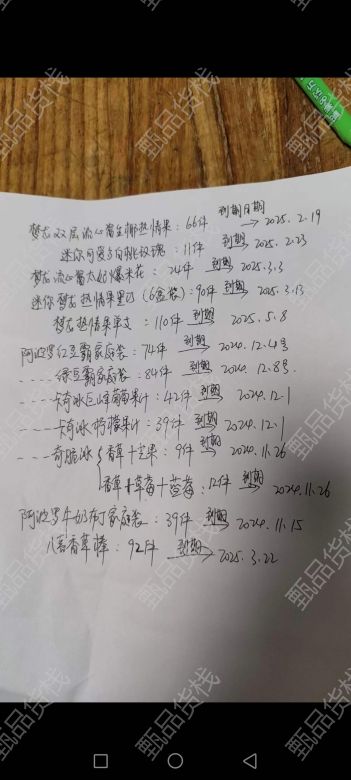 到期日期
梦龙双层流心酱生椰热情果：66件 → 2025.2.19
迷你白巧与白桃玫瑰：11件 到期 2025.2.23
梦龙流心酱太妃爆米花：24件 到期 2025.3.3
迷你梦龙热情果黑巧（6盒装）：90件 到期 2025.3.13
梦龙热情果单支：110件 到期 2025.5.8
阿波罗红豆霸家庭装：74件 到期 2024.12.4号
----绿豆霸家庭装：84件 到期 2024.12.8号
----卡奇冰巨峰葡萄果汁：42件 到期 2024.12.1
----卡奇冰柠檬果汁：39件 到期 2024.12.1
----奇脆冰{香草+芒果：9件 到期 2024.11.26
香草+草莓+蓝莓：12件 到期 2024.11.26
阿波罗牛奶布丁家庭装：39件 到期 2024.11.15
八喜香草棒：92件 到期 2025.3.22
甄品货栈